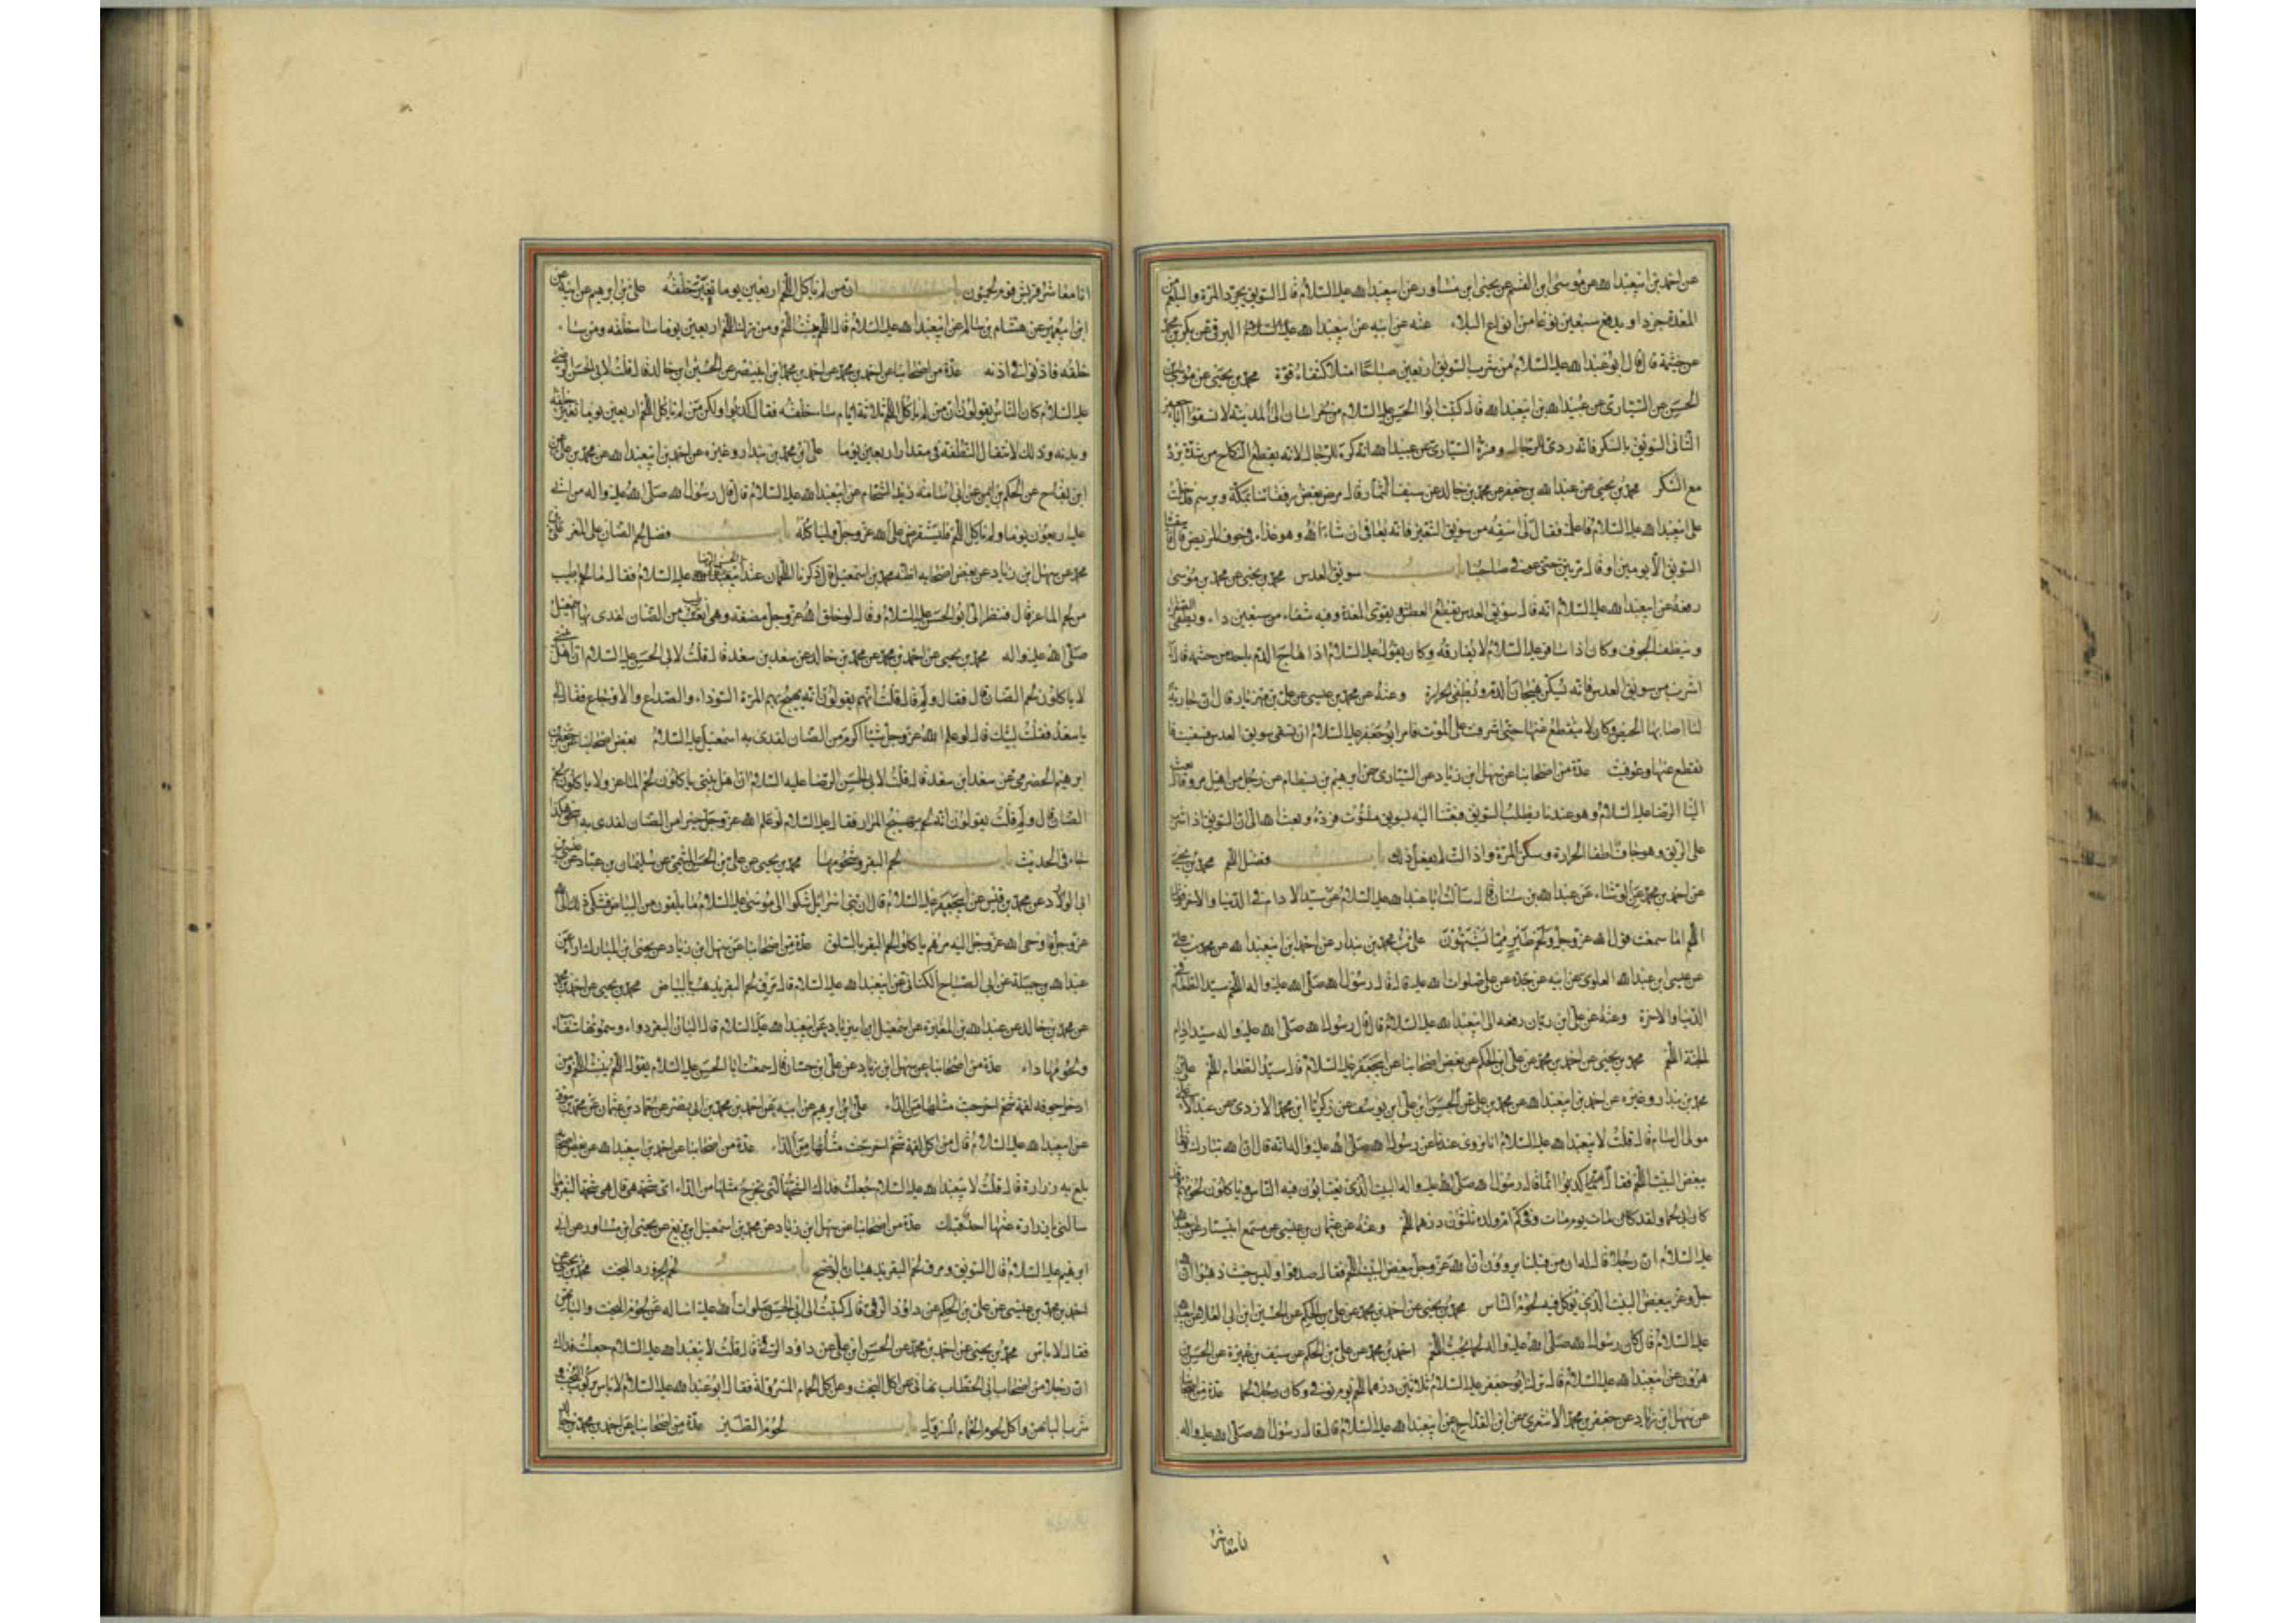 عن احمد بن ابيعبدالله عن موسى ابن القسم عن يحيى ابن مساور عن ابيعبدالله عليه السلام قال السويق يجرد المرة والبلغم من
المعدة جردا ويدفع سبعين نوعا من انواع البلاء عنه عن ابيه عن ابيعبدالله عليه السلام البرقى عن بكر بن محمد
عن خيثمة قال قال ابو عبدالله عليه السلام من شرب السويق اربعين صباحا امتلا كتفاه قوة محمد بن يحيى عن موسى بن
الحسن عن السيارى عن عبيدالله بن ابيعبدالله قال كتب ابو الحسن عليه السلام من خراسان الى المدينة لا تسقوا ابا جعفر
الثانى السويق بالسكر فانه ردى للرجال وفسره السيارى عن عبيدالله انه كره للرجال لانه يقطع النكاح من شدة برده
مع السكر محمد بن يحيى عن عبدالله بن جعفر عن محمد بن خالد عن سيف التمار قال مرض بعض رفقائنا بمكة وبرسم فدخلت
على ابيعبدالله عليه السلام فاعلمته فقال لى اسقه من سويق الشعير فانه يعافى ان شاء الله وهو غذاء فى جوف المريض قال فما سقيناه
السويق الا يومين او قال مرتين حتى عوفى صاحبنا باب سويق العدس محمد بن يحيى عن محمد بن موسى
رفعه عن ابيعبدالله عليه السلام انه قال سويق العدس يقطع العطش ويقوى المعدة وفيه شفاء من سبعين داء ويطفى الصفراء
وينظف الجوف وكان اذا سافر عليه السلام لا يفارقه وكان يقول عليه السلام اذا هاج الدم باحد من حشمه قال له
اشرب من سويق العدس فانه يسكن هيجان الدم ويطفى الحرارة وعنه عن محمد بن عيسى عن على بن مهزيار قال ان جارية
لنا اصابها الحيض وكان لا ينقطع عنها حتى اشرفت على الموت فامر ابو جعفر عليه السلام ان تسقى سويق العدس فسقيت فا
نقطع عنها وعوفيت عدة من اصحابنا عن سهل ابن زياد عن السيارى عن ابرهيم بن بسطام عن رجل من اهل مرو قال بعث
الينا الرضا عليه السلام وهو عندنا يطلب السويق فبعثنا اليه بسويق ملتوت فرده وبعث الى ان السويق اذا شرب
على الريق وهو جاف اطفا الحرارة وسكن المرة واذا لت لم يفعل ذلك باب فضل اللحم محمد بن يحيى
عن احمد بن محمد عن الوشاء عن عبدالله بن سنان قال سالت ابا عبدالله عليه السلام عن سيد الادام فى الدنيا والاخرة فقال
اللحم اما سمعت قول الله عز وجل ولحم طير مما يشتهون على بن محمد بن بندار عن احمد ابن ابيعبدالله عن محمد بن على
عن عيسى ابن عبدالله العلوى عن ابيه عن جده عن على صلوات الله عليه قال قال رسول الله صلى الله عليه واله اللحم سيد الطعام فى
الدنيا والاخرة وعنه عن على ابن ريان رفعه الى ابيعبدالله عليه السلام قال قال رسول الله صلى الله عليه واله سيد ادام
الجنة اللحم محمد بن يحيى عن احمد بن محمد عن على ابن الحكم عن بعض اصحابنا عن ابيجعفر عليه السلام قال سيد الطعام اللحم على بن
محمد بن بندار وغيره عن احمد بن ابيعبدالله عن محمد بن على عن الحسن ابن على ابن يوسف عن زكريا ابن محمد الازدى عن عبدالاعلى
مولى ال سام قال قلت لابيعبدالله عليه السلام انا نروى عندنا عن رسول الله صلى الله عليه واله انه قال ان الله تبارك وتعالى
يبغض البيت اللحم فقال كذبوا انما قال رسول الله صلى الله عليه واله البيت الذى يغتابون فيه الناس وياكلون لحومهم وقد
كان ابى لحما ولقد مات يوم مات وفى كم ام ولده ثلثون درهما للحم وعنه عن عثمان بن عيسى عن مسمع ابى سيار عن ابيعبدالله
عليه السلام ان رجلا قال له ان من قبلنا يروون ان الله عز وجل يبغض البيت اللحم فقال صدقوا وليس حيث ذهبوا ان الله
جل وعز يبغض البيت الذى توكل فيه لحوم الناس محمد بن يحيى عن احمد بن محمد عن على بن الحكم عن الحسين ابن ابى العلا عن ابيعبدالله
عليه السلام قال كان رسول الله صلى الله عليه واله لحما يحب اللحم احمد بن محمد عن على بن الحكم عن سيف بن عميرة عن الحسين بن
هرون عن ابيعبدالله عليه السلام قال ترك ابو جعفر عليه السلام ثلاثين درهما للحم يوم توفى وكان رجلا لحما عدة من اصحابنا
عن سهل ابن زياد عن جعفر بن محمد الاشعرى عن ابن القداح عن ابيعبدالله عليه السلام قال قال رسول الله صلى الله عليه واله
انا معاشر
انا معاشر قريش قوم لحميون باب ان من لم ياكل اللحم اربعين يوما تغير خلقه على بن ابرهيم عن ابيه عن
ابن ابيعمير عن هشام بن سالم عن ابيعبدالله عليه السلام قال اللحم ينبت اللحم ومن ترك اللحم اربعين يوما ساء خلقه ومن ساء
خلقه فاذنوا فى اذنه عدة من اصحابنا عن احمد بن محمد عن احمد بن محمد ابن ابينصر عن الحسين ابن خالد قال قلت لابى الحسن الرضى
عليه السلام كان الناس يقولون ان من لم ياكل اللحم ثلاثة ايام ساء خلقه فقال كذبوا ولكن من لم ياكل اللحم اربعين يوما تغير خلقه
وبدنه وذلك لانتقال النطفة فى مقدار اربعين يوما على ابن محمد بن بندار وغيره عن احمد بن ابيعبدالله عن محمد بن على عن
ابن بقاح عن الحكم بن ايمن عن ابى اسامة زيد الشحام عن ابيعبدالله عليه السلام قال قال رسول الله صلى الله عليه واله من اتى
عليه اربعون يوما ولم ياكل اللحم فليستقرض على الله عز وجل ولياكله باب فضل لحم الضان على المعز على بن
محمد عن سهل ابن زياد عن بعض اصحابه اظنه محمد بن اسمعيل قال ذكرنا اللحمان عند عليه السلام فقال ما لحم باطيب
من لحم الماعز قال فنظر الى ابو الحسن عليه السلام وقال لو خلق الله عز وجل مضغة وهى اطيب من الضان لفدى بها اسمعيل
صلى الله عليه واله محمد بن يحيى عن احمد بن محمد عن محمد بن خالد عن سعد بن سعد قال قلت لابى الحسن عليه السلام ان اهل بيتى
لا ياكلون لحم الضان قال فقال ولم قال قلت انهم يقولون انه يهيج بهم المرة السوداء والصداع والاوجاع فقال لى
يا سعد فقلت لبيك قال لو علم الله عز وجل شيئا اكرم من الضان لفدى به اسمعيل عليه السلام بعض اصحابنا عن جعفر بن
ابرهيم الحضرمى عن سعد ابن سعد قال قلت لابى الحسن الرضا عليه السلام ان اهل بيتى ياكلون لحم الماعز ولا ياكلون لحم
الضان قال ولم قلت يقولون انه لحم يهيج المرار فقال عليه السلام لو علم الله عز وجل خيرا من الضان لفدى به اسحق هكذا
جاء فى الحديث باب لحم البقر وشحومها محمد بن يحيى عن على بن الحسن الميثمى عن سليمان بن عباد عن عيسى بن
ابى الورد عن محمد بن قيس عن ابيجعفر عليه السلام قال ان بنى اسرائيل شكوا الى موسى عليه السلام ما يلقون من البياض فشكى ذلك الى الله
عز وجل فاوحى الله عز وجل اليه مرهم ياكلوا لحم البقر بالسلق عدة من اصحابنا عن سهل ابن زياد عن يحيى ابن المبارك عن
عبدالله بن جبلة عن ابى الصباح الكنانى عن ابيعبدالله عليه السلام قال مرق لحم البقر يذهب بالبياض محمد بن يحيى عن احمد بن محمد
عن محمد بن خالد عن عبدالله بن المغيرة عن اسمعيل ابن ابى زياد عن ابيعبدالله عليه السلام قال البان البقر دواء وسمونها شفاء
ولحومها داء عدة من اصحابنا عن سهل ابن زياد عن على ابن حسان قال سمعت ابا الحسن عليه السلام يقول اللحم ينبت اللحم ومن
ادخل جوفه لقمة شحم اخرجت مثلها من الداء على ابن ابرهيم عن ابيه عن احمد بن محمد بن ابى نصر عن حماد بن عثمان عن محمد بن سوقة
عن ابيعبدالله عليه السلام قال من اكل لقمة شحم اخرجت مثلها من الداء عدة من اصحابنا عن احمد بن ابيعبدالله عن بعض اصحابنا
بلغ به زرارة قال قلت لابيعبدالله عليه السلام جعلت فداك الشحمة التى تخرج مثلها من الداء اى شحمة هى قال هى شحمة البقر وما
سالنى يا زرارة عنها احد قبلك عدة من اصحابنا عن سهل ابن زياد عن محمد بن اسمعيل ابن بزيع عن يحيى ابن مساور عن ابى
ابرهيم عليه السلام قال السويق ومرق لحم البقر يذهبان بالوضح باب لحم الجزور والبخت محمد بن يحيى عن
احمد بن محمد بن عيسى عن على بن الحكم عن داود الرقى قال كتبت الى ابى الحسن صلوات الله عليه اساله عن لحوم البخت والبانهن
فقال لا باس محمد بن يحيى عن احمد بن محمد عن الحسن ابن على عن داود الرقى قال قلت لابيعبدالله عليه السلام جعلت فداك
ان رجلا من اصحاب ابى الخطاب نهانى عن اكل البخت وعن اكل الحمام المسرولة فقال ابو عبدالله عليه السلام لا باس بركوب البخت و
شرب البانهن واكل لحوم الحمام المسرولة باب لحوم الطير عدة من اصحابنا عن احمد بن محمد بن خالد